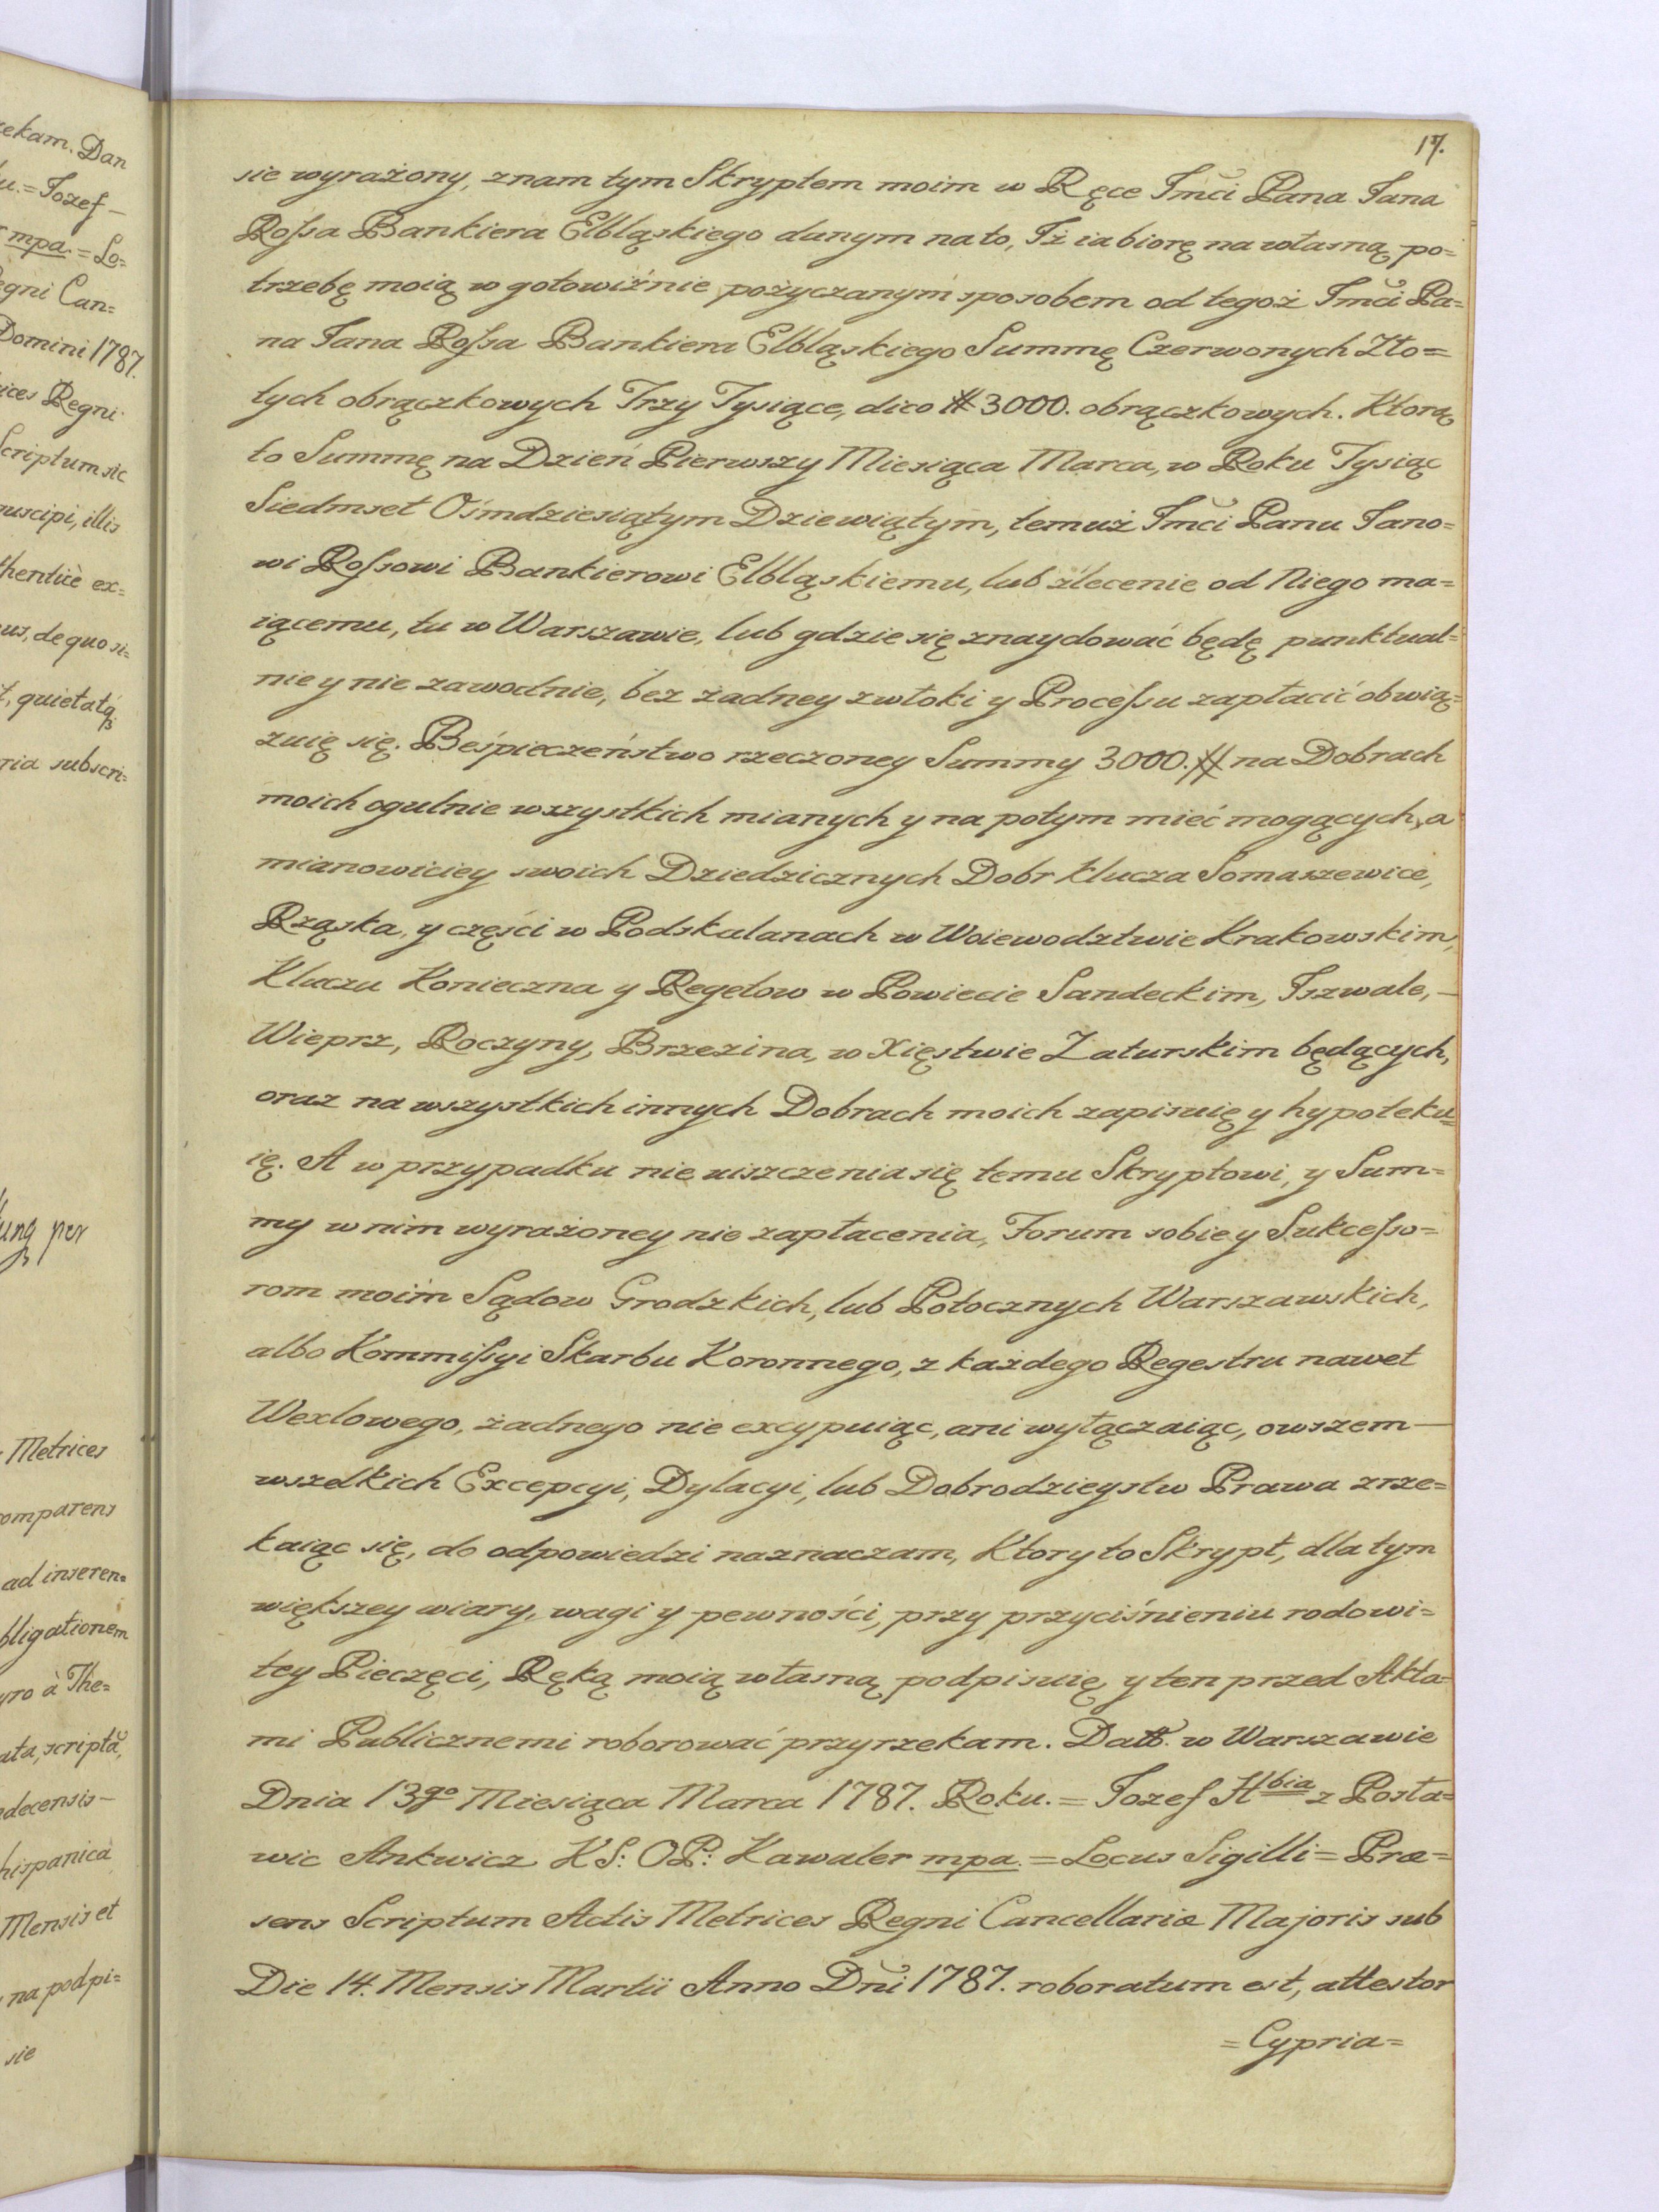 17.
sie wyrażony, znam tym Skryptem moim w Ręce Jmci Pana Jana
Rossa Bankiera Elbląskiego danym na to, Iż ia biorę na własną po=
trzebę moią w gotowiźnie pożyczanym sposobem od tegoż Jmci Pa=
na Jana Rossa Bankiera Elbląskiego Summę Czerwonych Zło=
tych obrączkowych Trzy Tysiące, dico # 3000. obrączkowych. Ktorą
to Summę na Dzień Pierwszy Miesiąca Marca, w Roku Tysiąc
Siedmset Ośmdziesiątym Dziewiątym, temuż Jmci Panu Jano=
wi Rossowi Bankierowi Elbląskiemu, lub zlecenie od Niego ma=
iącemu, tu w Warszawie, lub gdzie się znaydować będę punktual=
nie y nie zawodnie, bez żadney zwłoki y Processu zapłacić obwią=
zuię się. Beśpieczeństwo rzeczoney Summy 3000. # na Dobrach
moich ogulnie wszystkich mianych y na potym mieć mogących, a
mianowiciey swoich Dziedzicznych Dobr klucza Somaszewice,
Rząska, y części w Podskalanach w Woiewodztwie Krakowskim,
Kluczu Konieczna y Regetow w Powiecie Sandeckim, Jszwale, —
Wieprz, Roczyny, Brzezina, w Xięstwie Zaturskim będących,
oraz na wszystkich innych Dobrach moich zapisuię y hypoteku=
ię. A w przypadku nie uiszczenia się temu Skryptowi, y Sum=
my w nim wyrażoney nie zapłacenia, Forum sobie y Sukcesso=
rom moim Sądow Grodzkich, lub Potocznych Warszawskich,
albo Kommissyi Skarbu Koronnego, z każdego Regestru nawet
Wexlowego, żadnego nie excypuiąc, ani wyłączaiąc, owszem —
wszelkich Excepcyi, Dylacyi, lub Dobrodzieystw Prawa zrze=
kaiąc się, do odpowiedzi naznaczam, Ktory to Skrypt, dla tym
większey wiary, wagi y pewności, przy przyciśnieniu rodowi=
tey Pieczęci, Ręką moią własną podpisuię, y ten przed Akta=
mi Publicznemi roborować przyrzekam. Datt. w Warszawie
Dnia 13go Miesiąca Marca 1787. Roku. = Jozef Hbia z Posła=
wic Ankwicz K S: O P: Kawaler mpa. = Locus Sigilli = Præ=
sens Scriptum Actis Metrices Regni Cancellariæ Majoris sub
Die 14. Mensis Martii Anno Dni 1787. roboratum est, attestor
= Cypria =
ekam. Dan
u. = Jozef —
mpa. = Lo=
egni Can=
Domini 1787.
ices Regni
Scriptum sic
uscipi, illis
thenticè ex=
us, de quo si=
t, quietatq
ria subscri=
ung per
Metrices
omparens
ad inseren=
bligationem
yro à The=
ata, scriptã,
decensis —
hispanica
Mensis et
na podpi=
sie